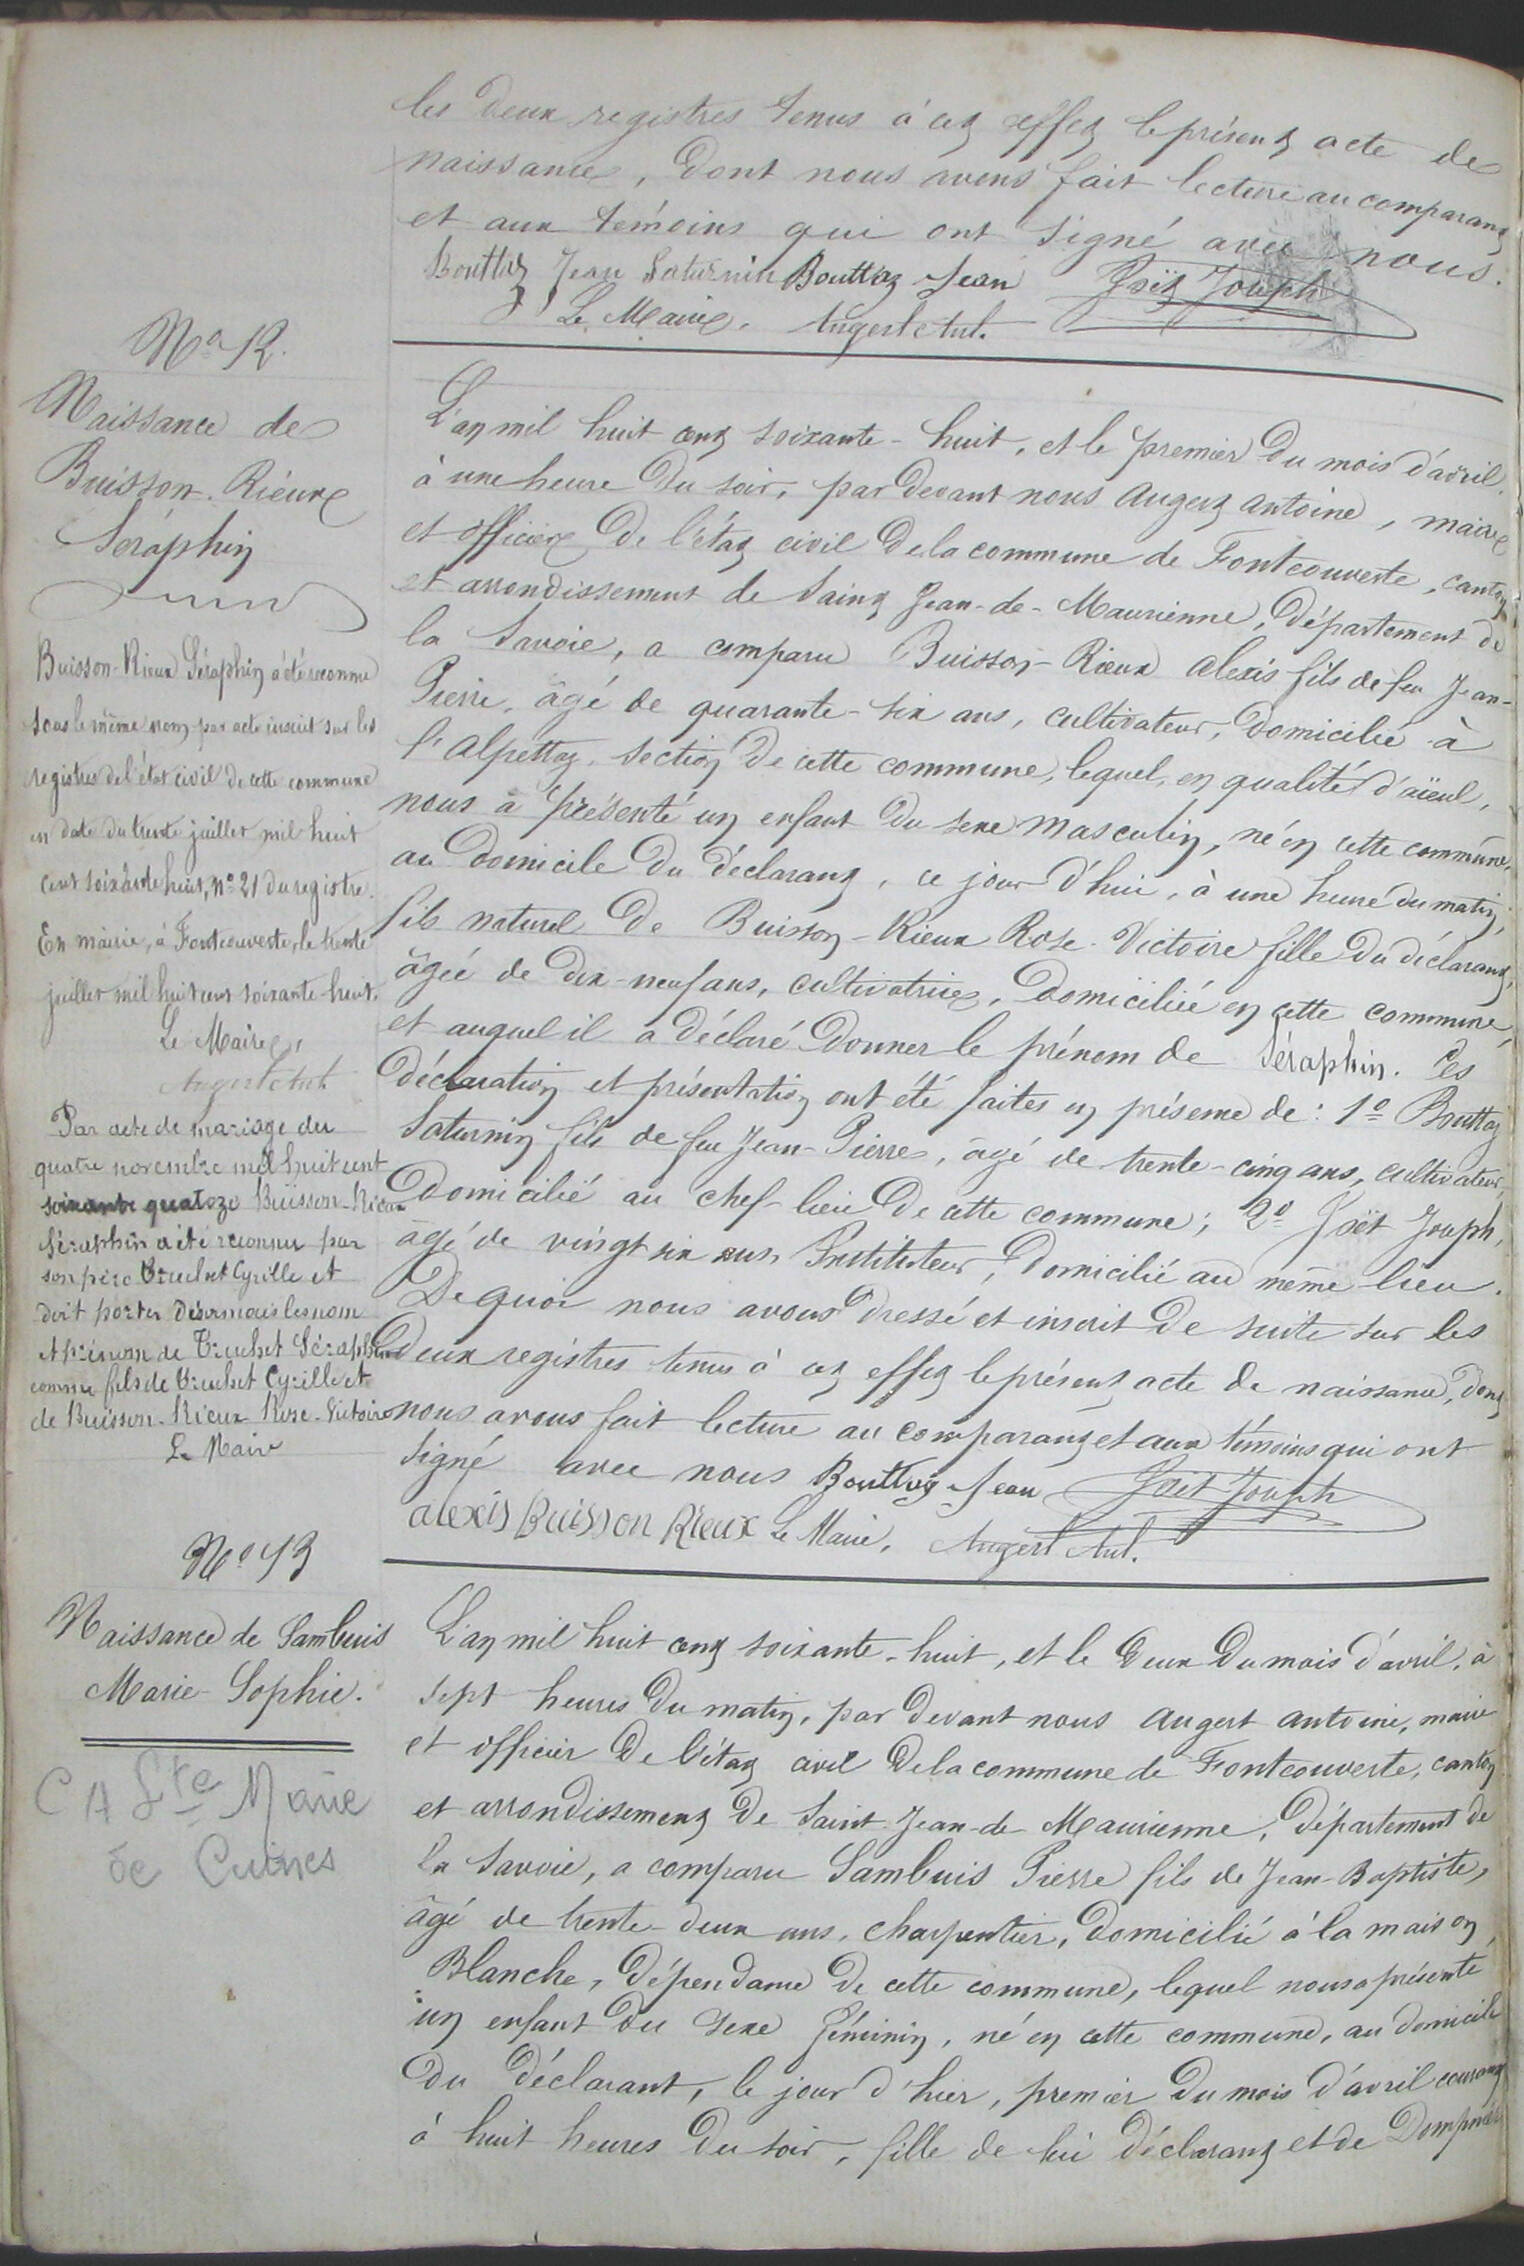 les deux registres tenus à cet effet le présent acte de
naissance, dont nous avons fait lecture au comparant
et aux témoins qui ont signé avec nous.
Bouttaz Jean Saturnin Bouttaz Jean Joseph
Le Maire, Augert Ant.
No 12.
Naissance de
Buisson-Rieux
Séraphin
Buisson-Rieux Séraphin a été reconnu
sous le même nom par acte inscrit sur les
registres de l'état civil de cette commune
en date du trente juillet mil huit
cent soixante huit, no 21 du registre.
En mairie, à Fontcouverte, le trente
juillet mil huit cent soixante huit.
Le Maire,
Augert Ant.
Par acte de mariage du
quatre novembre mil huit cent
soixante quatoze Buisson-Rieux
Séraphin a été reconnu par
son père Truchet Cyrille et
doit porter désormais les nom
et prénom de Truchet Séraphin
comme fils de Truchet Cyrille et
de Buisson-Rieux Rose-Victoire
Le Maire
L'an mil huit cent soixante-huit, et le premier du mois d'avril,
à une heure du soir, par devant nous Augert Antoine, maire
et officier de l'état civil de la commune de Fontcouverte, canton
et arrondissement de Saint Jean-de-Maurienne, département de
la Savoie, a comparu Buisson-Rieux Alexis fils de feu Jean-
Pierre, âgé de quarante-six ans, cultivateur, domicilié à
l'Alpettaz, section de cette commune, lequel, en qualité d'aïeul,
nous a présenté un enfant du sexe masculin, né en cette commune,
au domicile du déclarant, ce jour d'hui, à une heure du matin,
fils naturel de Buisson-Rieux Rose-Victoire fille du déclarant,
âgée de dix-neuf ans, cultivatrice, domiciliée en cette commune,
et auquel il a déclaré donner le prénom de Séraphin. Ces
déclaration et présentation ont été faites en présence de : 1o Bouttaz
Saturnin fils de feu Jean-Pierre, âgé de trente-cinq ans, cultivateur,
domicilié au chef-lieu de cette commune; 2o Joseph,
âgé de vingt six ans, Instituteur, domicilié au même lieu.
De quoi nous avons dressé et inscrit de suite sur les
deux registres tenus à cet effet le présent acte de naissance, dont
nous avons fait lecture au comparant et aux témoins qui ont
signé avec nous Bouttaz Jean Joseph
alexis Buisson Rieux Le Maire, Augert Ant.
No 13
Naissance de Sambuis
Marie-Sophie.
CA Ste Marie
de Cuines
L'an mil huit cent soixante-huit, et le deux du mois d'avril, à
sept heures du matin, par devant nous Augert Antoine, maire
et officier de l'état civil de la commune de Fontcouverte, canton
et arrondissement de Saint-Jean-de-Maurienne, département de
la Savoie, a comparu Sambuis Pierre fils de Jean-Baptiste,
âgé de trente-deux ans, charpentier, domicilié à la maison
Blanche, dépendance de cette commune, lequel nous a présenté
un enfant du sexe féminin, né en cette commune, au domicile
du déclarant, le jour d'hier, premier du mois d'avril courant
à huit heures du soir, fille de lui déclarant et de Dompnier